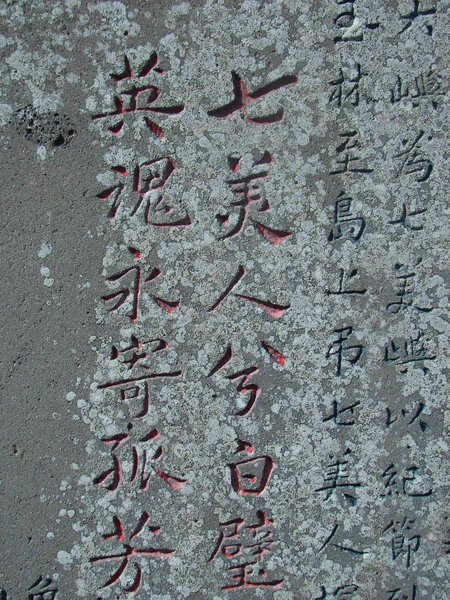 大嶼為七美嶼以紀節
玉林至島上弔七美人
七美人兮白璧
英魂永寄孤芳